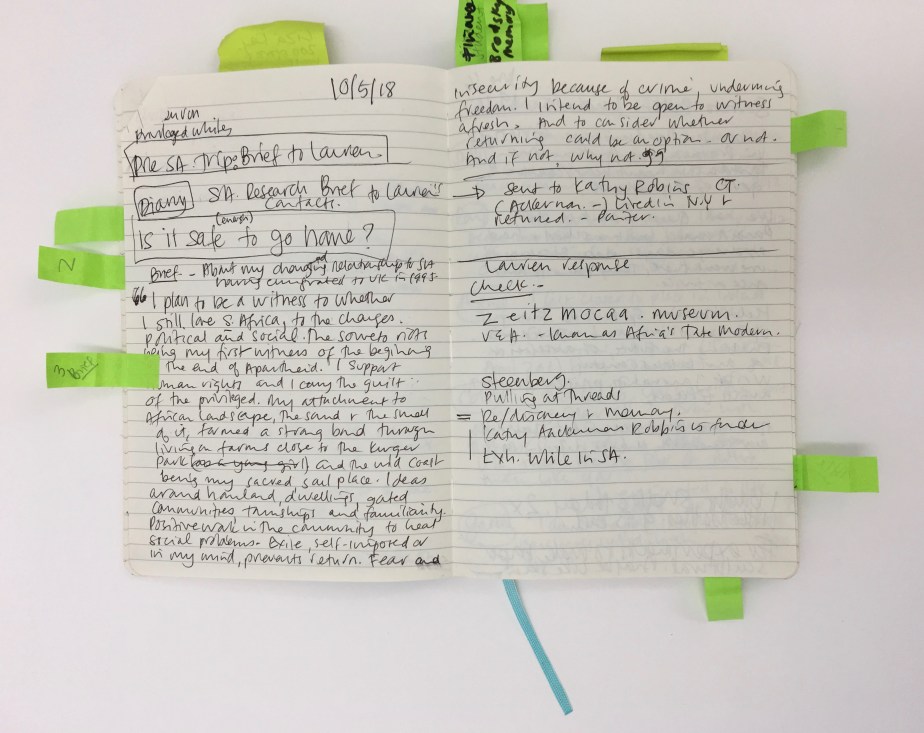 Finance
Brodsky
memory
10/5/18
privileged whites
Pre SA. Trip: Brief to Lauren.
Diary SA. Research Brief to Lauren's
contacts.
(enough)
Is it safe to go home?
N
Brief - About my changing relationship to SA
having emigrated to UK in 1995
66 I plan to be a witness to whether
I still love S. Africa, to the changes.
political and social. The Soweto riots
being my first witness of the beginning
the end of Apartheid. I support
human rights and I carry the guilt
of the privileged. My attachment to
African landscape, the sand & the smell
of it, formed a strong bond through
living on farms close to the Kruger
Park (as a young girl) and the wild coast
being my sacred soul place. Ideas
around homeland, dwellings, gated
communities townships and familiarity.
Positive work in the community to heal
social problems. Exile, self-imposed or
in my mind, prevents return. Fear and
3 Brief
insecurity because of crime, undermining
freedom. I intend to be open to witness
afresh. And to consider whether
returning could be an option. or not.
And if not, why not.
→ Sent to Kathy Robins CT.
(Ackerman. -) lived in N.Y &
returned. - Painter.
Lauren response
check.-
Zeitz mocaa. museum.
V&A. - known as Africa's Tate Modern.
Steenberg.
Pulling at Threads
= Re/discovery & memory.
Kathy Ackerman Robbins
Exh. While in SA.